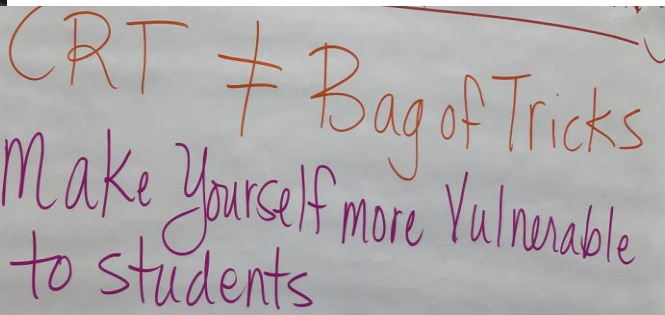 CRT ≠ Bag of Tricks
Make Yourself more Vulnerable
to students